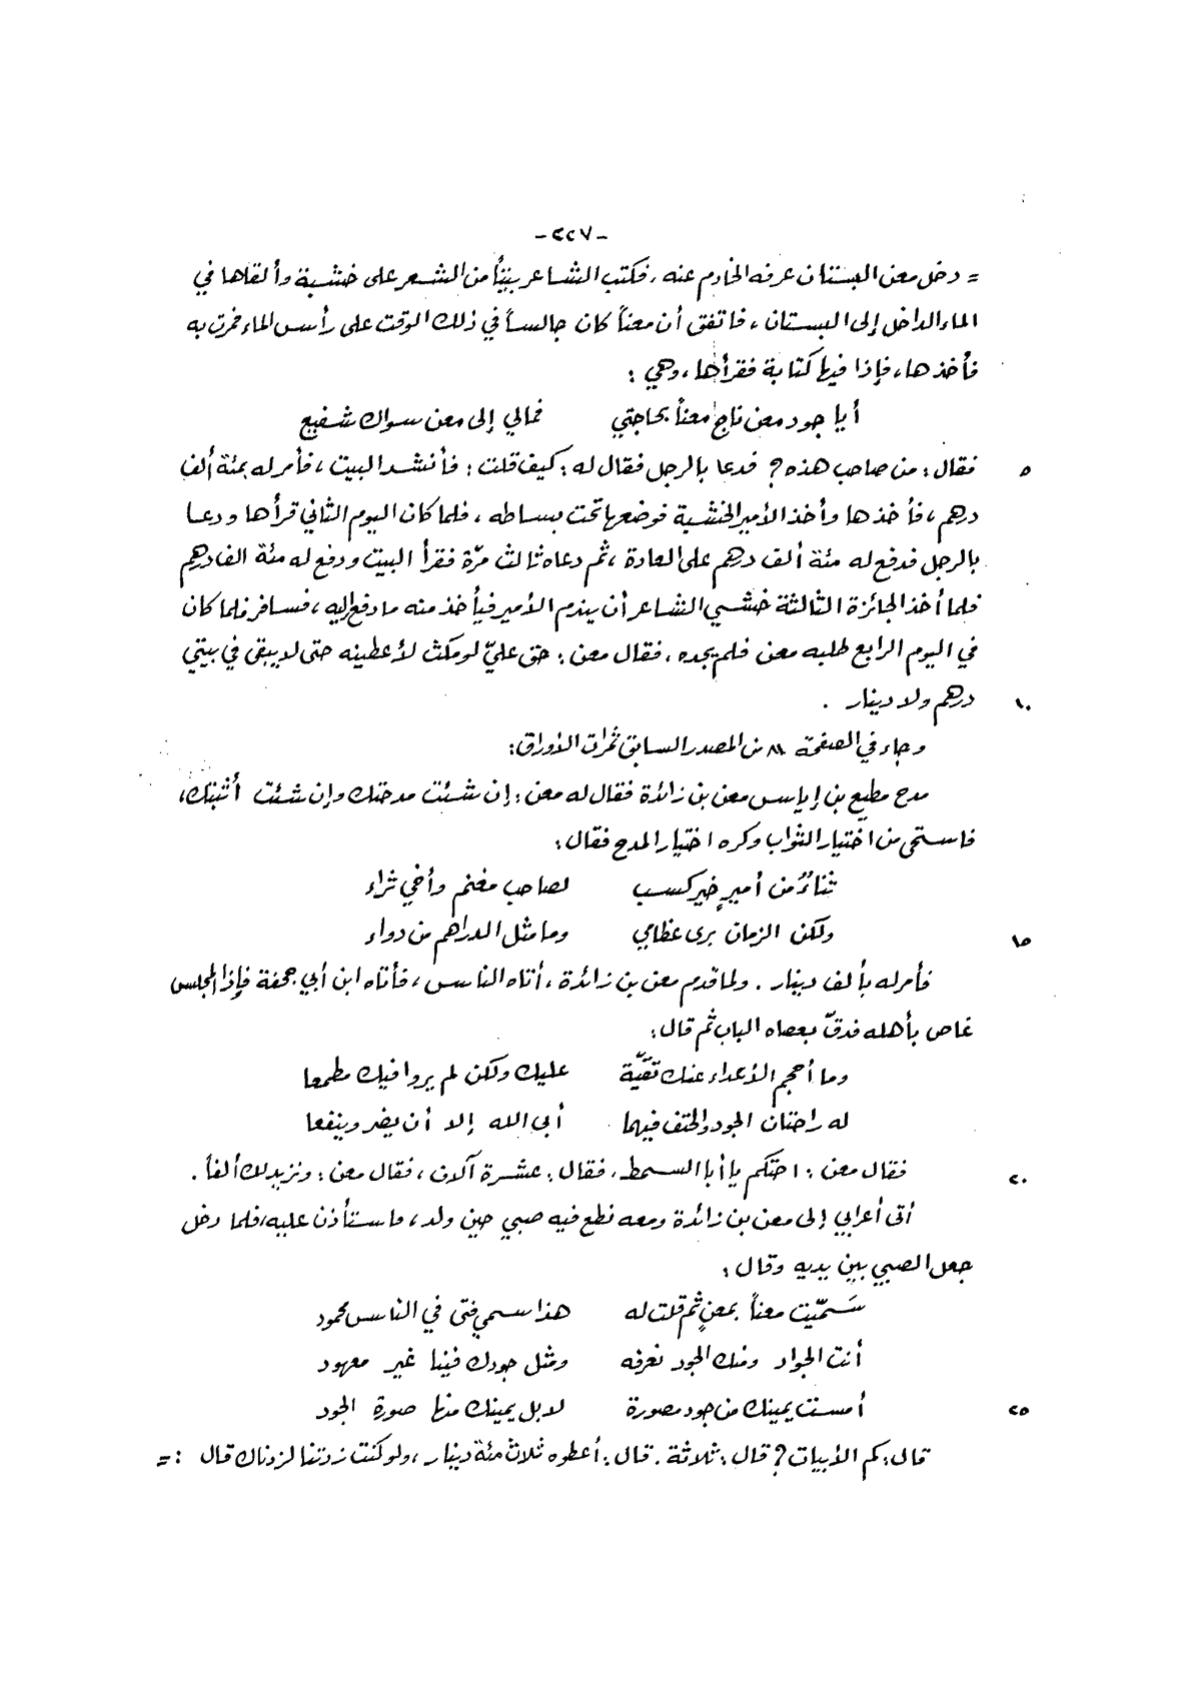 -٢٢٧-
= دخل معن البستان عرفه الخادم عنه، فكتب الشاعر بيتاً من الشعر على خشبة وألقاها في
الماء الداخل إلى البستان، فاتفق أن معناً كان جالساً في ذلك الوقت على رأس الماء فمرت به
فأخذها، فإذا فيها كتابة فقرأها، وهي :
أيا جود معن ناج معناً بحاجتي    فمالي إلى معن سواك شفيع
٥ فقال: من صاحب هذه؟ فدعا بالرجل فقال له: كيف قلت: فأنشد البيت، فأمر له بمئة ألف
درهم، فأخذها وأخذ الأمير الخشبة فوضعها تحت بساطه، فلما كان اليوم الثاني قرأها ودعا
بالرجل فدفع له مئة ألف درهم على العادة، ثم دعاه ثالث مرّة فقرأ البيت ودفع له مئة الف درهم
فلما أخذ الجائزة الثالثة خشي الشاعر أن يندم الأمير فيأخذ منه ما دفع إليه، فسافر فلما كان
في اليوم الرابع طلبه معن فلم يجده، فقال معن: حق عليّ لو مكث لأعطينه حتى لا يبقى في بيتي
١٠ درهم ولا دينار .
وجاء في الصفحة ٨٨ من المصدر السابق ثمرات الأوراق:
مدح مطيع بن إياس معن بن زائدة فقال له معن: إن شئت مدحتك وإن شئت أثبتك،
فاستحى من اختيار الثواب وكره اختيار المدح فقال:
ثناءٌ من أميرٍ خير كسب    لصاحب مغنم وأخي ثراء
١٥ ولكن الزمان برى عظامي    وما مثل الدراهم من دواء
فأمر له بألف دينار . ولما قدم معن بن زائدة، أتاه الناس، فأتاه ابن أبي جحفة فإذا المجلس
غاص بأهله فدقّ بعصاه الباب ثم قال:
وما أحجم الأعداء عنك تقيّة    عليك ولكن لم يروا فيك مطمعا
له راحتان الجود والحتف فيهما    أبى الله إلا أن يضر وينفعا
٢٠ فقال معن: احتكم يا أبا السمط، فقال: عشرة آلاف، فقال معن: ونزيد لك ألفاً .
أتى أعرابي إلى معن بن زائدة ومعه نطع فيه صبي حين ولد، فاستأذن عليه، فلما دخل
جعل الصبي بين يديه وقال:
سَمّيت معناً بمعنٍ ثم قلت له    هذا سمي فتى في الناس محمود
أنت الجواد ومنك الجود نعرفه    ومثل جودك فينا غير معهود
٢٥ أمست يمينك من جود مصورة    لا بل يمينك منها صورة الجود
قال: كم الأبيات؟ قال: ثلاثة. قال: أعطوه ثلاث مئة دينار، ولو كنت زدتنا لزدناك قال : =